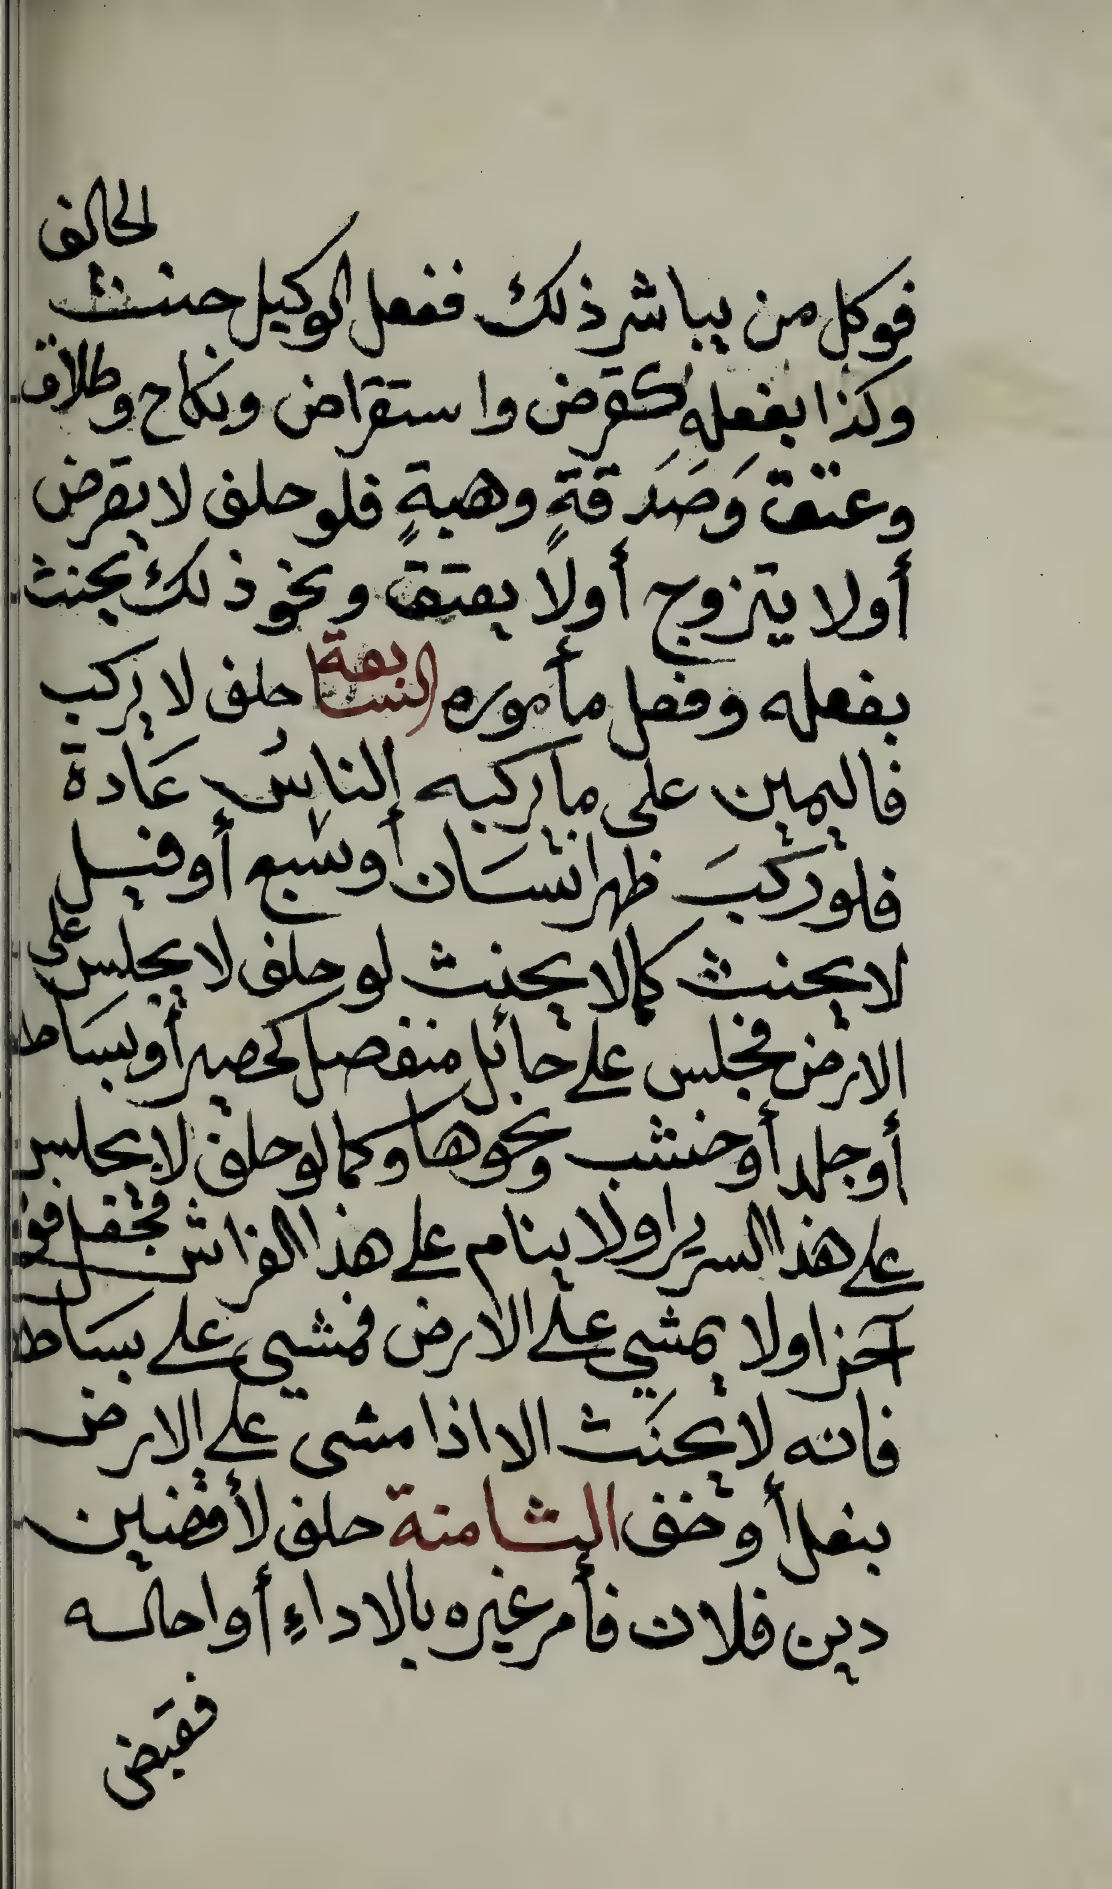 الحالف
فوكل من يباشر ذلك ففعل الوكيل حنث
وكذا بفعله كقرض واستقراض ونكاح وطلاق
وعتق وَصَدَقةٍ وهبةٍ فلو حلف لا يقرض
أولا يتزوج أولا يعتق ونحو ذلك يحنث
بفعله وفعل مأموره السابعة حلف لا يركب
فاليمين على ما يركبه الناسُ عَادة
فلو ركبَ ظهر انسَان أو سبع أو فيل
لا يحنث كما لا يحنث لو حلف لا يجلس على
الارض فجلس على حائل منفصل كحصير أو بسَاط
أو جلد أو خشب ونحوها وكما لو حلف لا يجلس
على هذا السرير اولا ينام على هذا الفراش فجعل فوقه
آخر اولا يمشي على الارض فمشي على بسَاط
فانه لا يحنَث الا اذا مشى على الارض
بنعل أو خف الثامنة حلف لأقضين
دين فلان فأمر غيره بالاداءِ أو احاله
فقبض